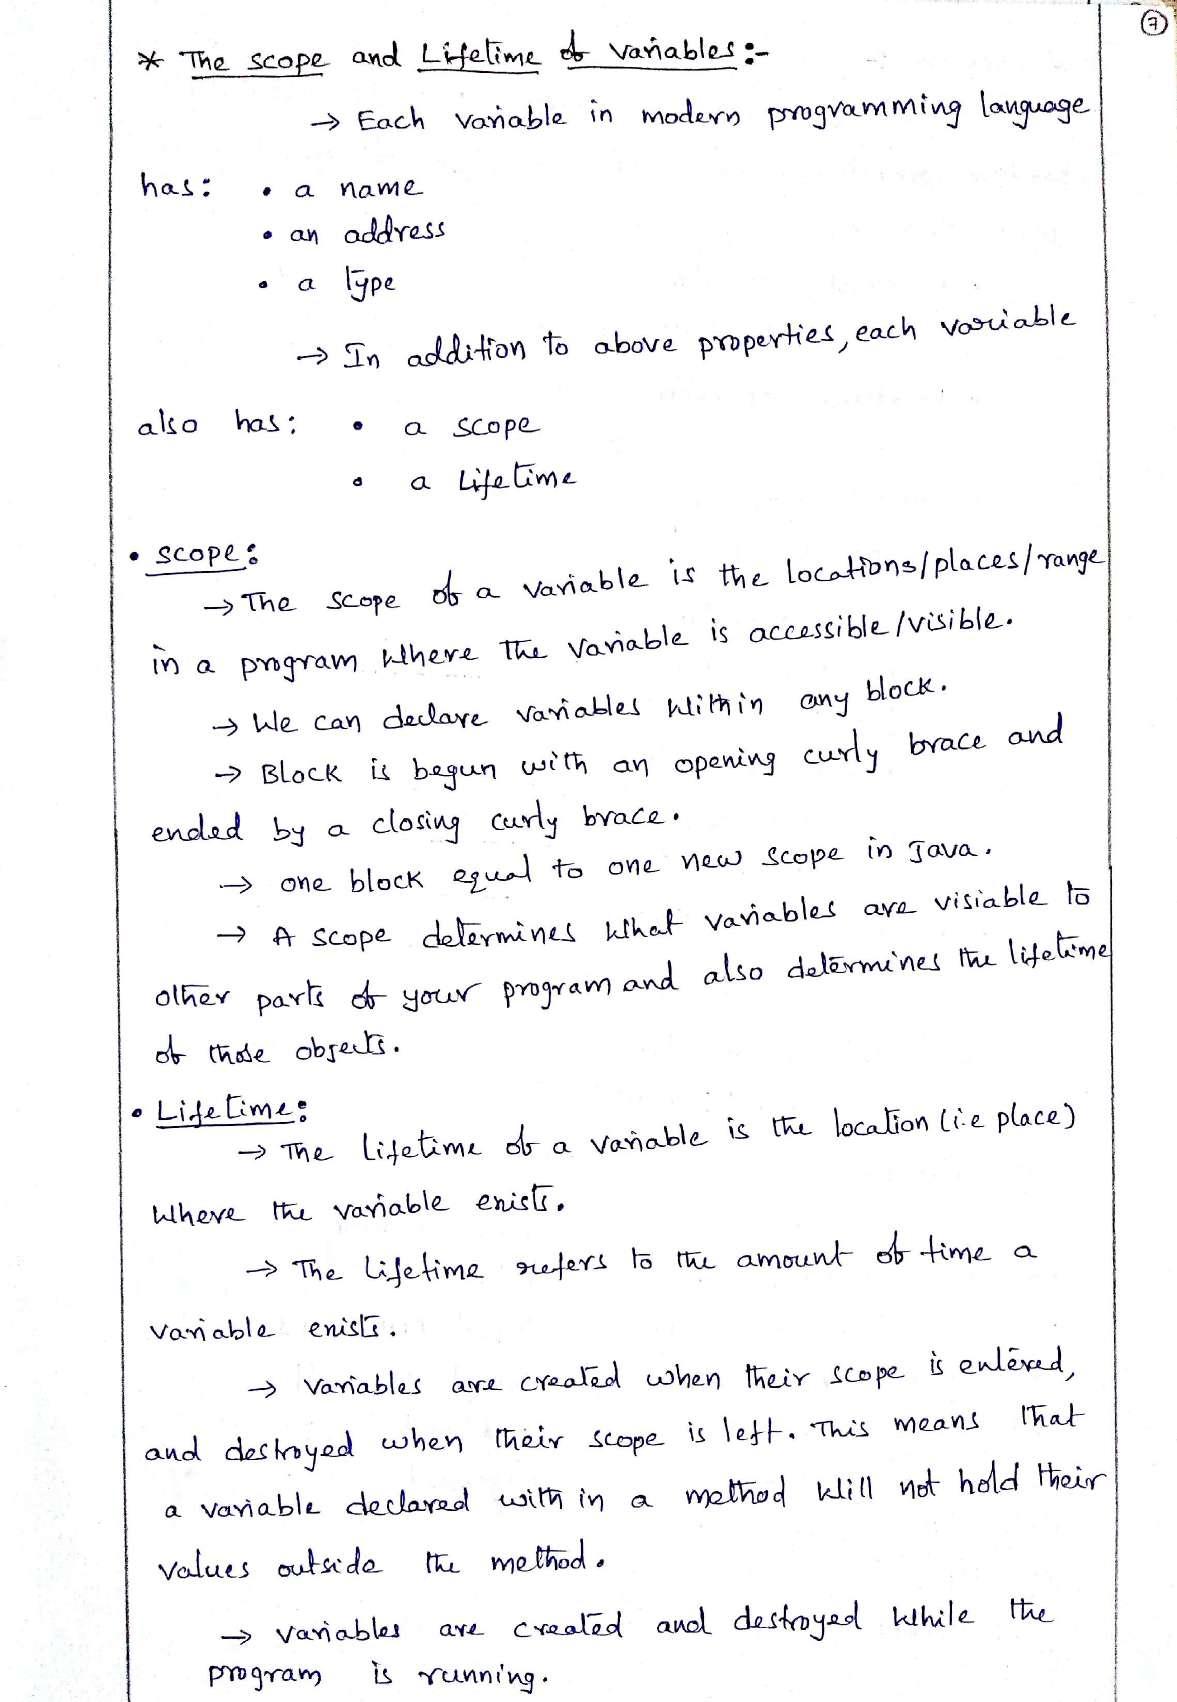 7
* The scope and Lifetime of variables:-
→ Each variable in modern programming language
has: • a name
• an address
• a type
→ In addition to above properties, each variable
also has: • a scope
• a Lifetime
• scope:
→ The scope of a variable is the locations/places/range
in a program where the variable is accessible/visible.
→ We can declare variables within any block.
→ Block is begun with an opening curly brace and
ended by a closing curly brace.
→ one block equal to one new scope in Java.
→ A scope determines what variables are visiable to
other parts of your program and also determines the lifetime
of those objects.
• Lifetime:
→ The lifetime of a variable is the location (i.e place)
where the variable exists.
→ The lifetime refers to the amount of time a
variable exists.
→ variables are created when their scope is entered,
and destroyed when their scope is left. This means that
a variable declared with in a method will not hold their
values outside the method.
→ variables are created and destroyed while the
program is running.